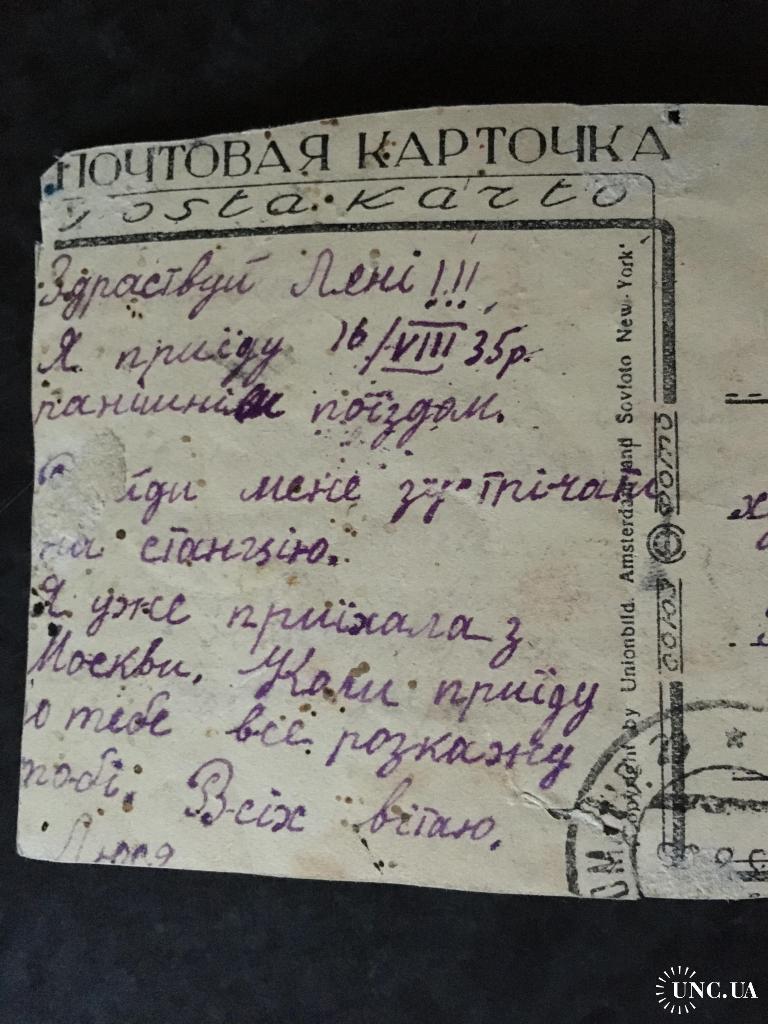 ПОЧТОВАЯ КАРТОЧКА
Posta karto
Здраствуй Лені!!!
Я приїду 16/VIII 35р.
раншнім поїздом.
мене зустрічати
на станцію.
Я уже приїхала з
Москви. Коли приїду
до тебе все розкажу
тобі. Всіх вітаю.
Люся
Copyright by Unionbild. Amsterdam and Sovfoto New-York'
союз фото
UNC.UA